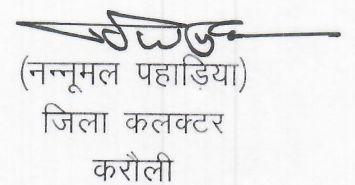 (नन्नूमल पहाड़िया)
जिला कलक्टर
करौली